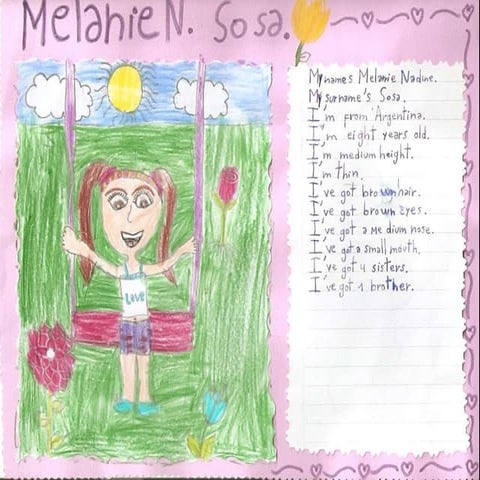 Melanie N. Sosa.
My names Melanie Nadine.
My surname's Sosa.
I'm from Argentina.
I'm eight years old.
I'm medium height.
I'm thin.
I've got brown hair.
I've got brown eyes.
I've got a medium nose.
I've got a small mouth.
I've got 4 sisters.
I've got 1 brother.
Love